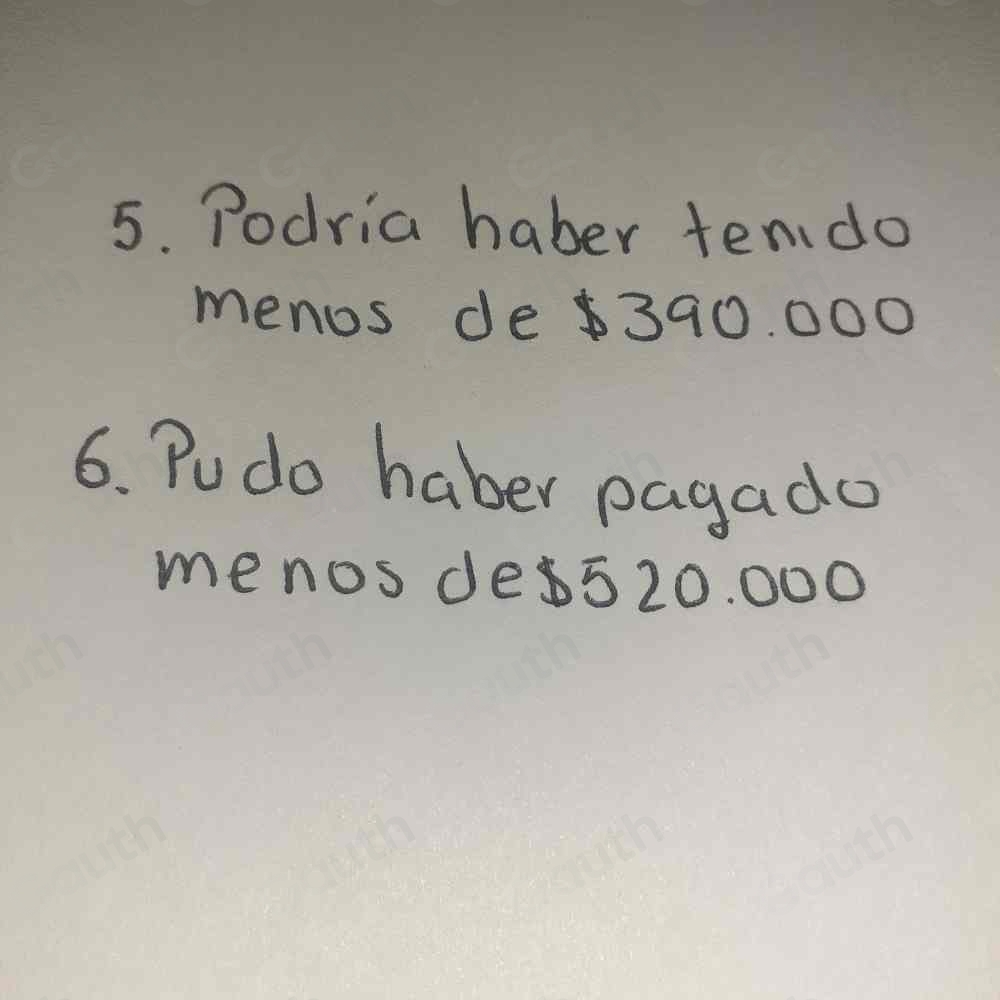 5. Podría haber tenido
menos de $390.000
6. Pudo haber pagado
menos de $520.000